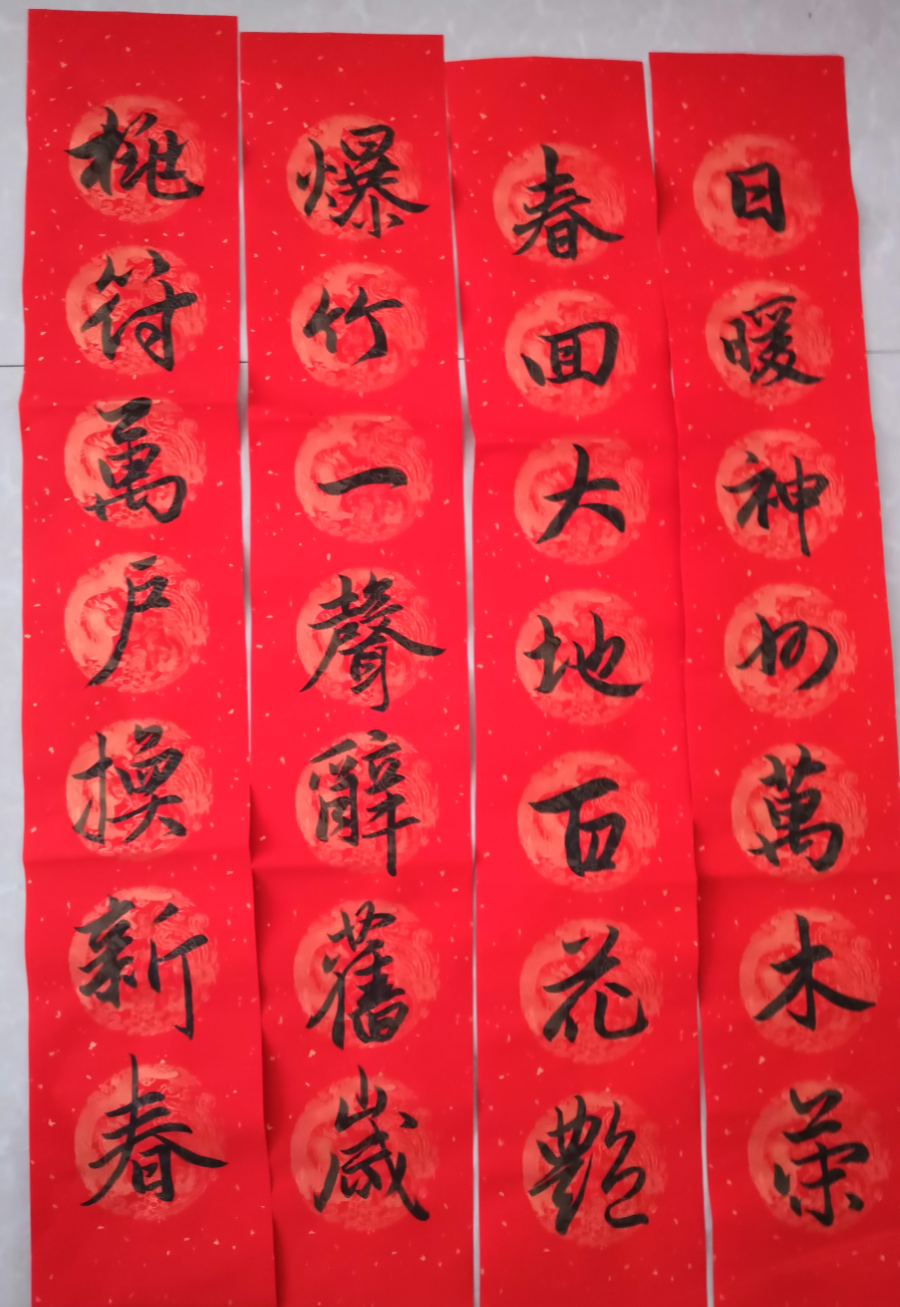 日暖神州萬木荣
春回大地百花艷
爆竹一聲辭舊歲
桃符萬戶換新春